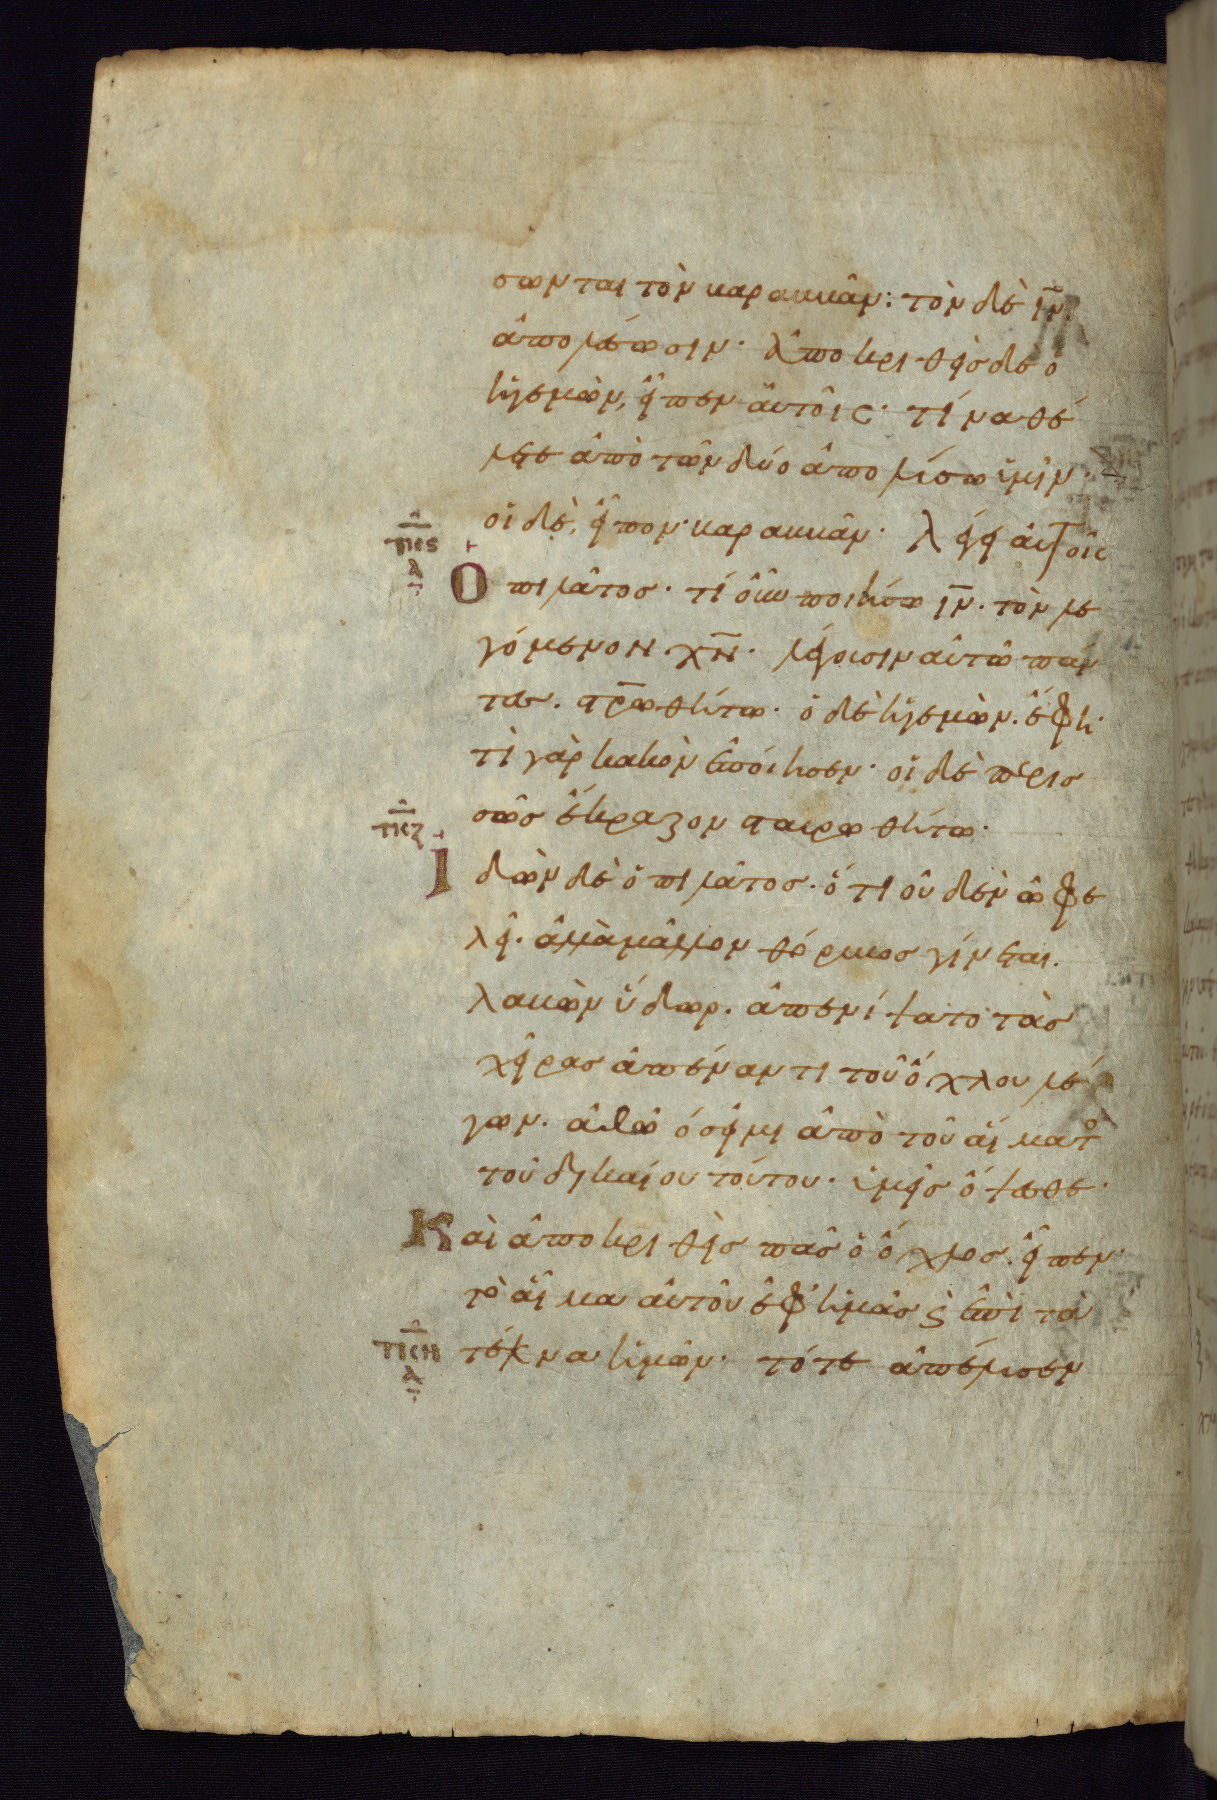 σωνται τὸν βαραββᾶν: τὸν δὲ ι̅ν̅
ἀπολέσωσιν· ἀποκριθεὶς δὲ ὁ
ἡγεμὼν, εἶπεν αὐτοῖς· τίνα θέ
λετε ἀπὸ τῶν δύο ἀπολύσω ὑμῖν·
οἱ δὲ, εἶπον· βαραββᾶν· λέγει αὐτοῖς
τκς
Ὁ πιλᾶτος· τί οὖν ποιήσω ι̅ν̅· τὸν λε
γόμενον χ̅ν̅· λέγουσιν αὐτῶ πάν
τες· στ̅ρωθήτω· ὁ δὲ ἡγεμὼν· ἔφη·
τί γὰρ κακὸν ἐποίησεν· οἱ δὲ περισ
σῶς ἔκραζον σταυρωθήτω·
τκζ
Ἰδὼν δὲ ὁ πιλᾶτος· ὅτι οὐδὲν ὠφε
λεῖ· ἀλλὰ μᾶλλον θόρυβος γίνεται·
λαβὼν ὕδωρ· ἀπενίψατο τὰς
χεῖρας ἀπέναντι τοῦ ὄχλου λέ
γων· ἀθῶός εἰμι ἀπὸ τοῦ αἵματο
τοῦ δικαίου τούτου· ὑμεῖς ὄψεσθε·
Καὶ ἀποκριθεὶς πᾶς ὁ ὄχλος· εἶπεν·
τὸ αἷμα αὐτοῦ ἐφ' ἡμᾶς ϗ ἐπὶ τὰ
τκη τέκνα ἡμῶν· τότε ἀπέλυσεν